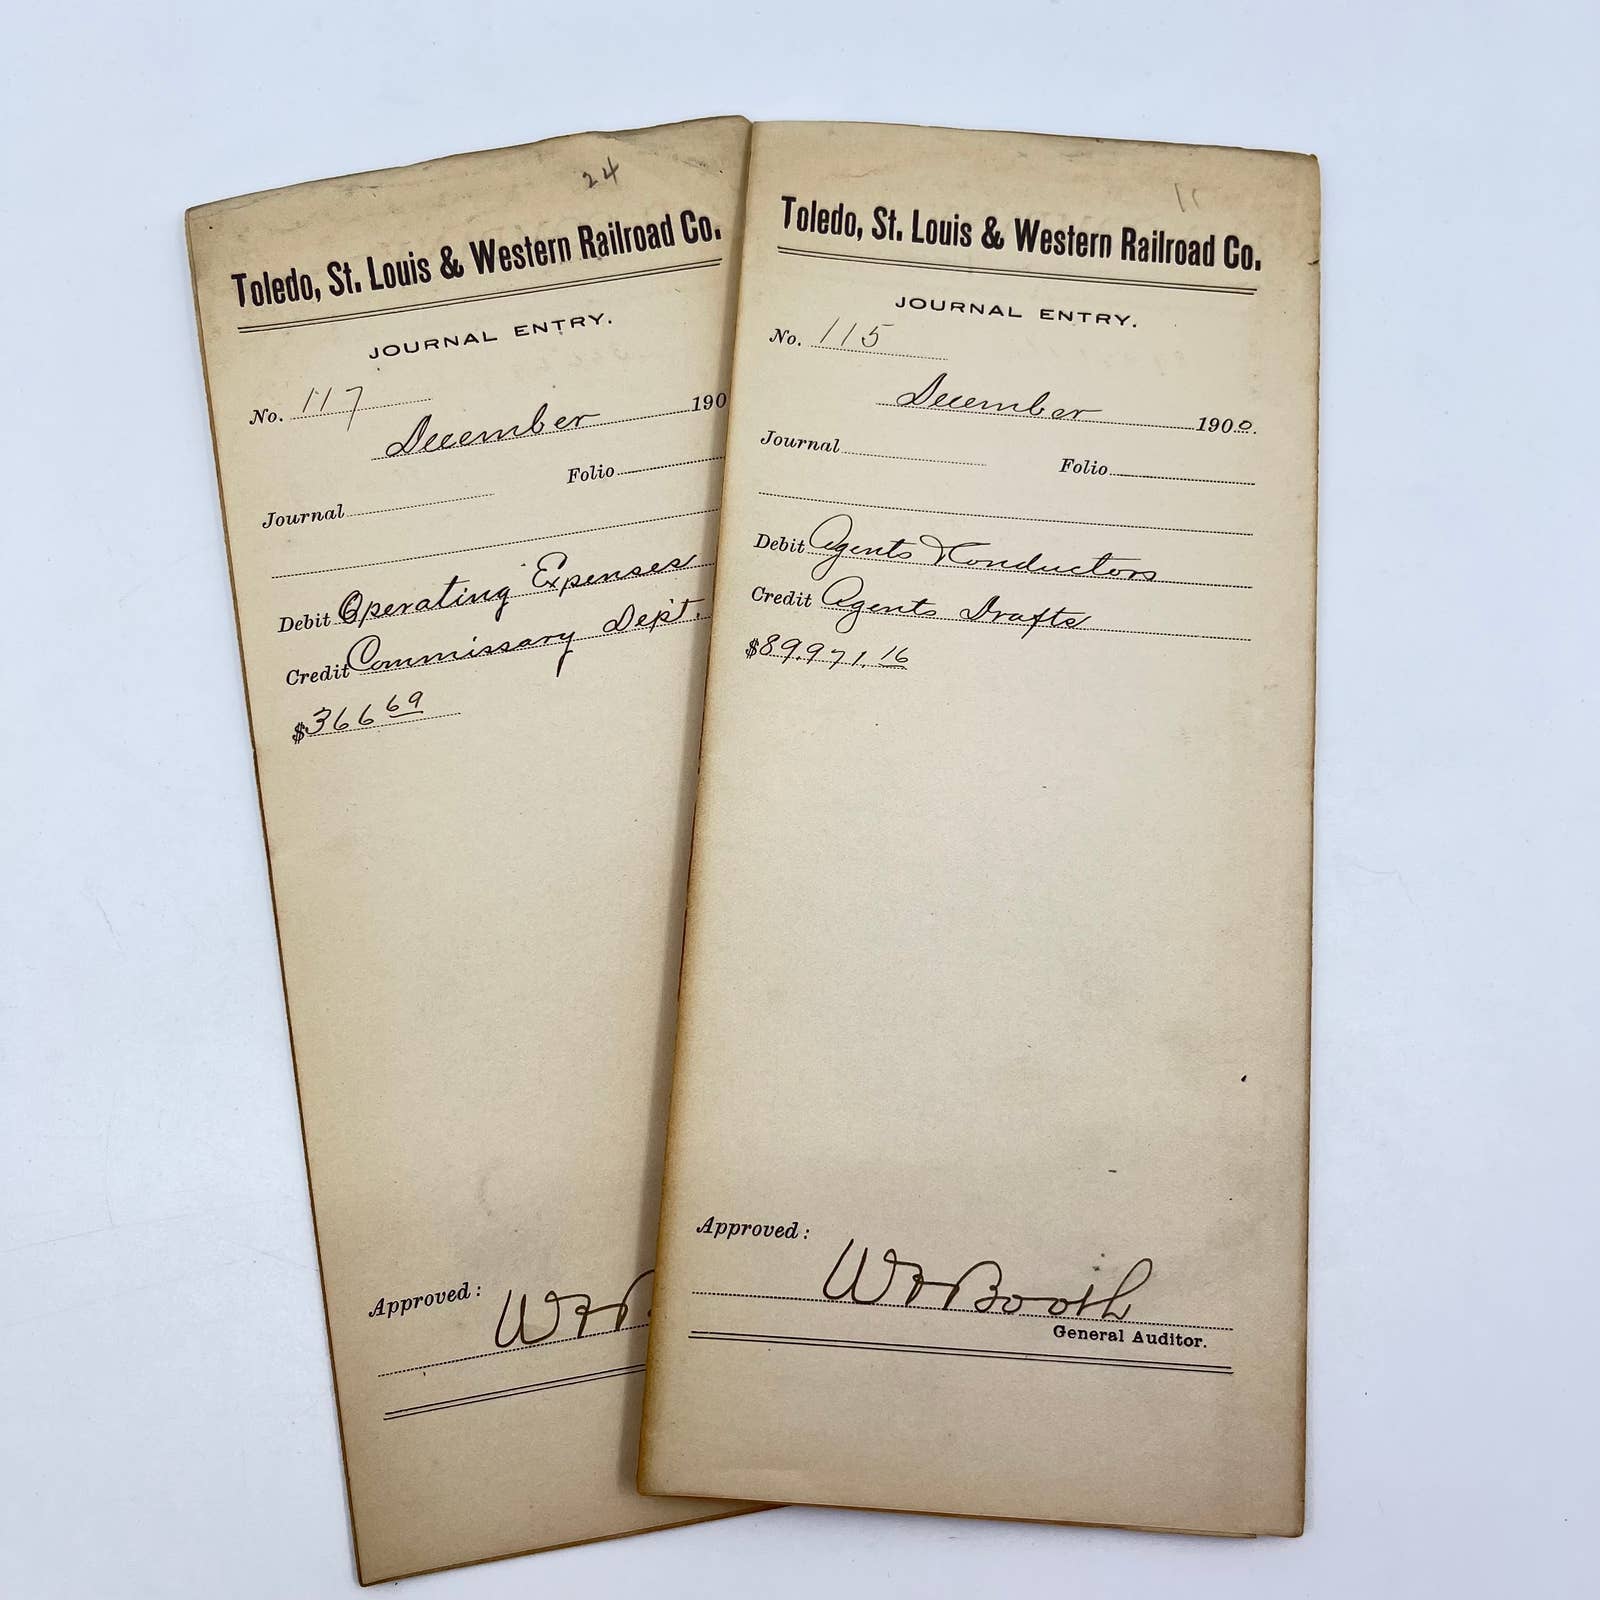 24
Toledo, St. Louis & Western Railroad Co.
JOURNAL ENTRY.
No. 117
December 190
Journal Folio
Debit Operating Expenses
Credit Commissary Dep't.
$366 69
Approved:
11
Toledo, St. Louis & Western Railroad Co.
JOURNAL ENTRY.
No. 115
December 1900.
Journal Folio
Debit Agents & Conductors
Credit Agents Drafts
$89,971.16
Approved:
Booth
General Auditor.